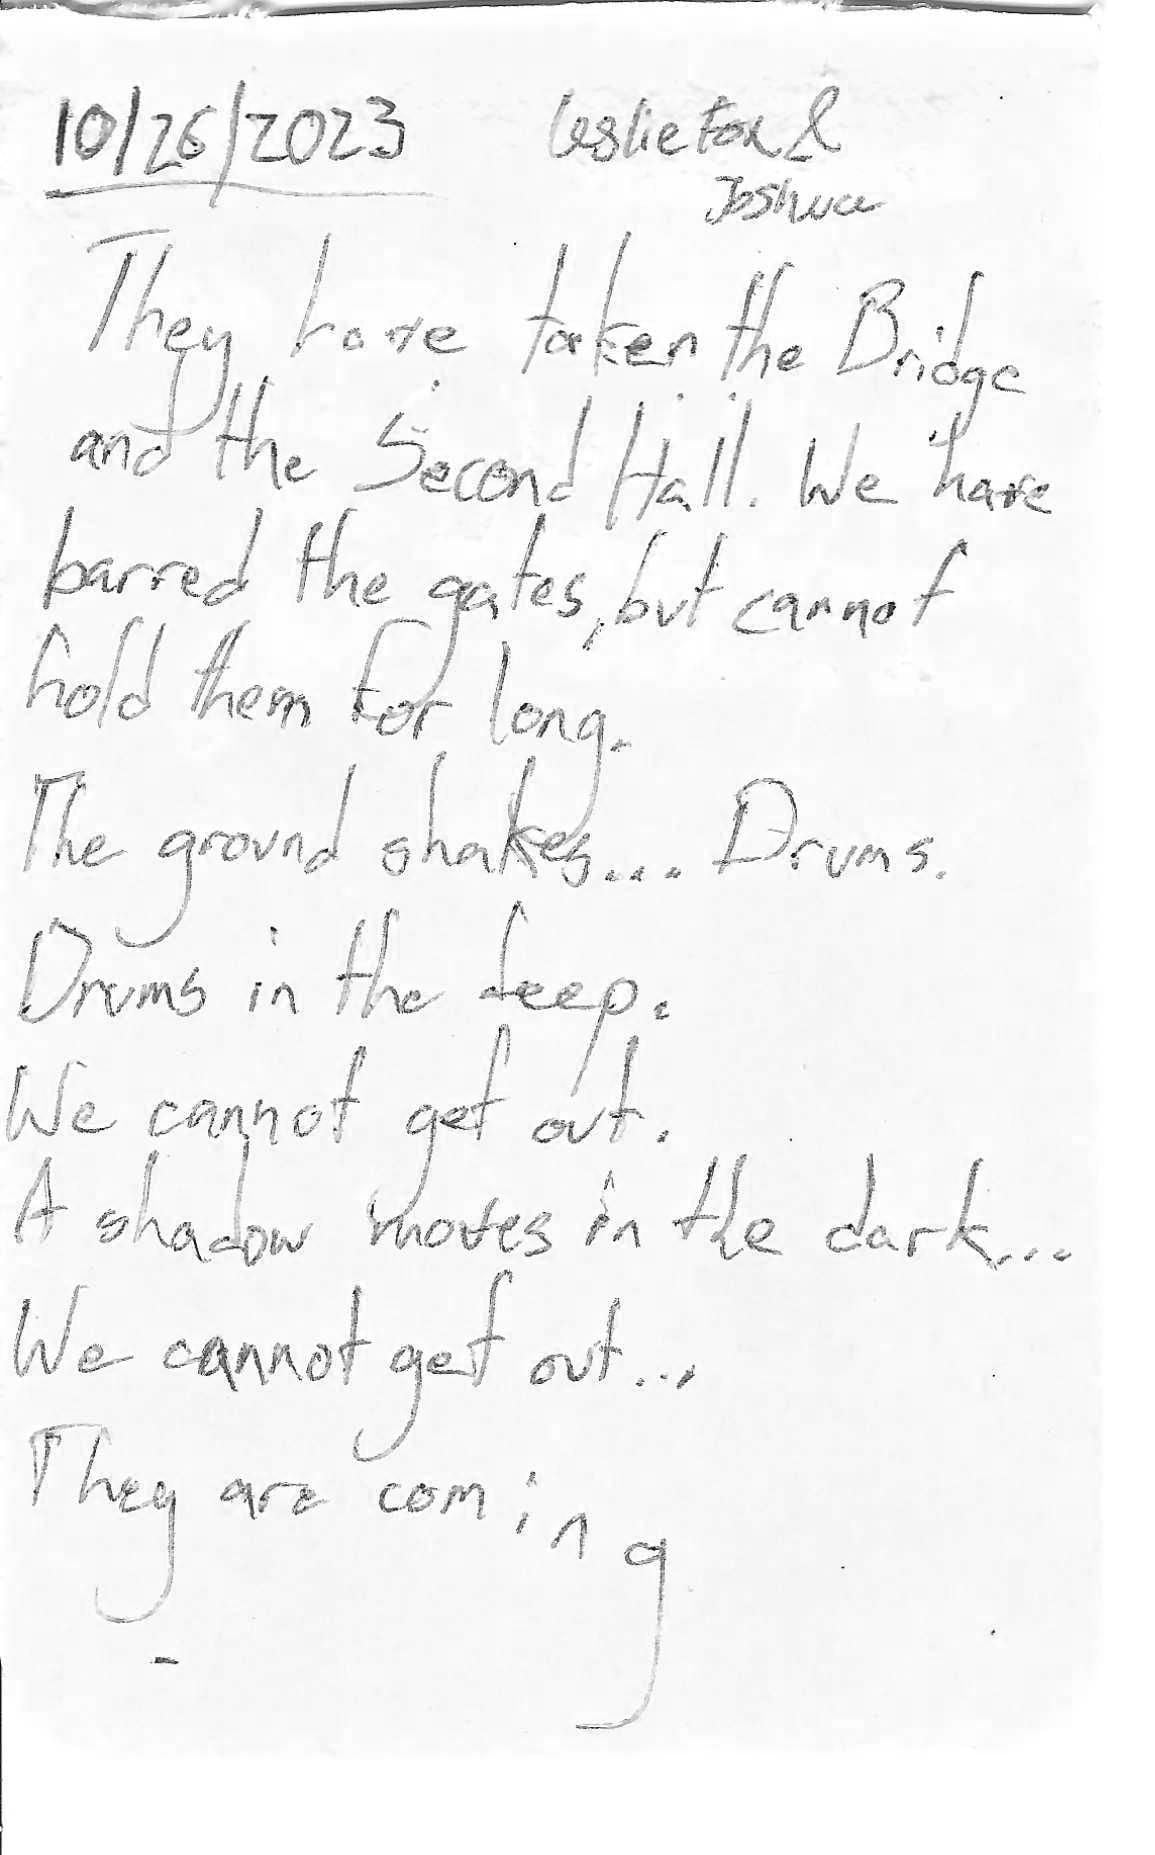 10/26/2023 Leslie Fox &
Joshua
They have taken the Bridge
and the Second Hall. We have
barred the gates, but cannot
hold them for long.
The ground shakes.... Drums.
Drums in the deep.
We cannot get out.
A shadow moves in the dark...
We cannot get out...
They are coming